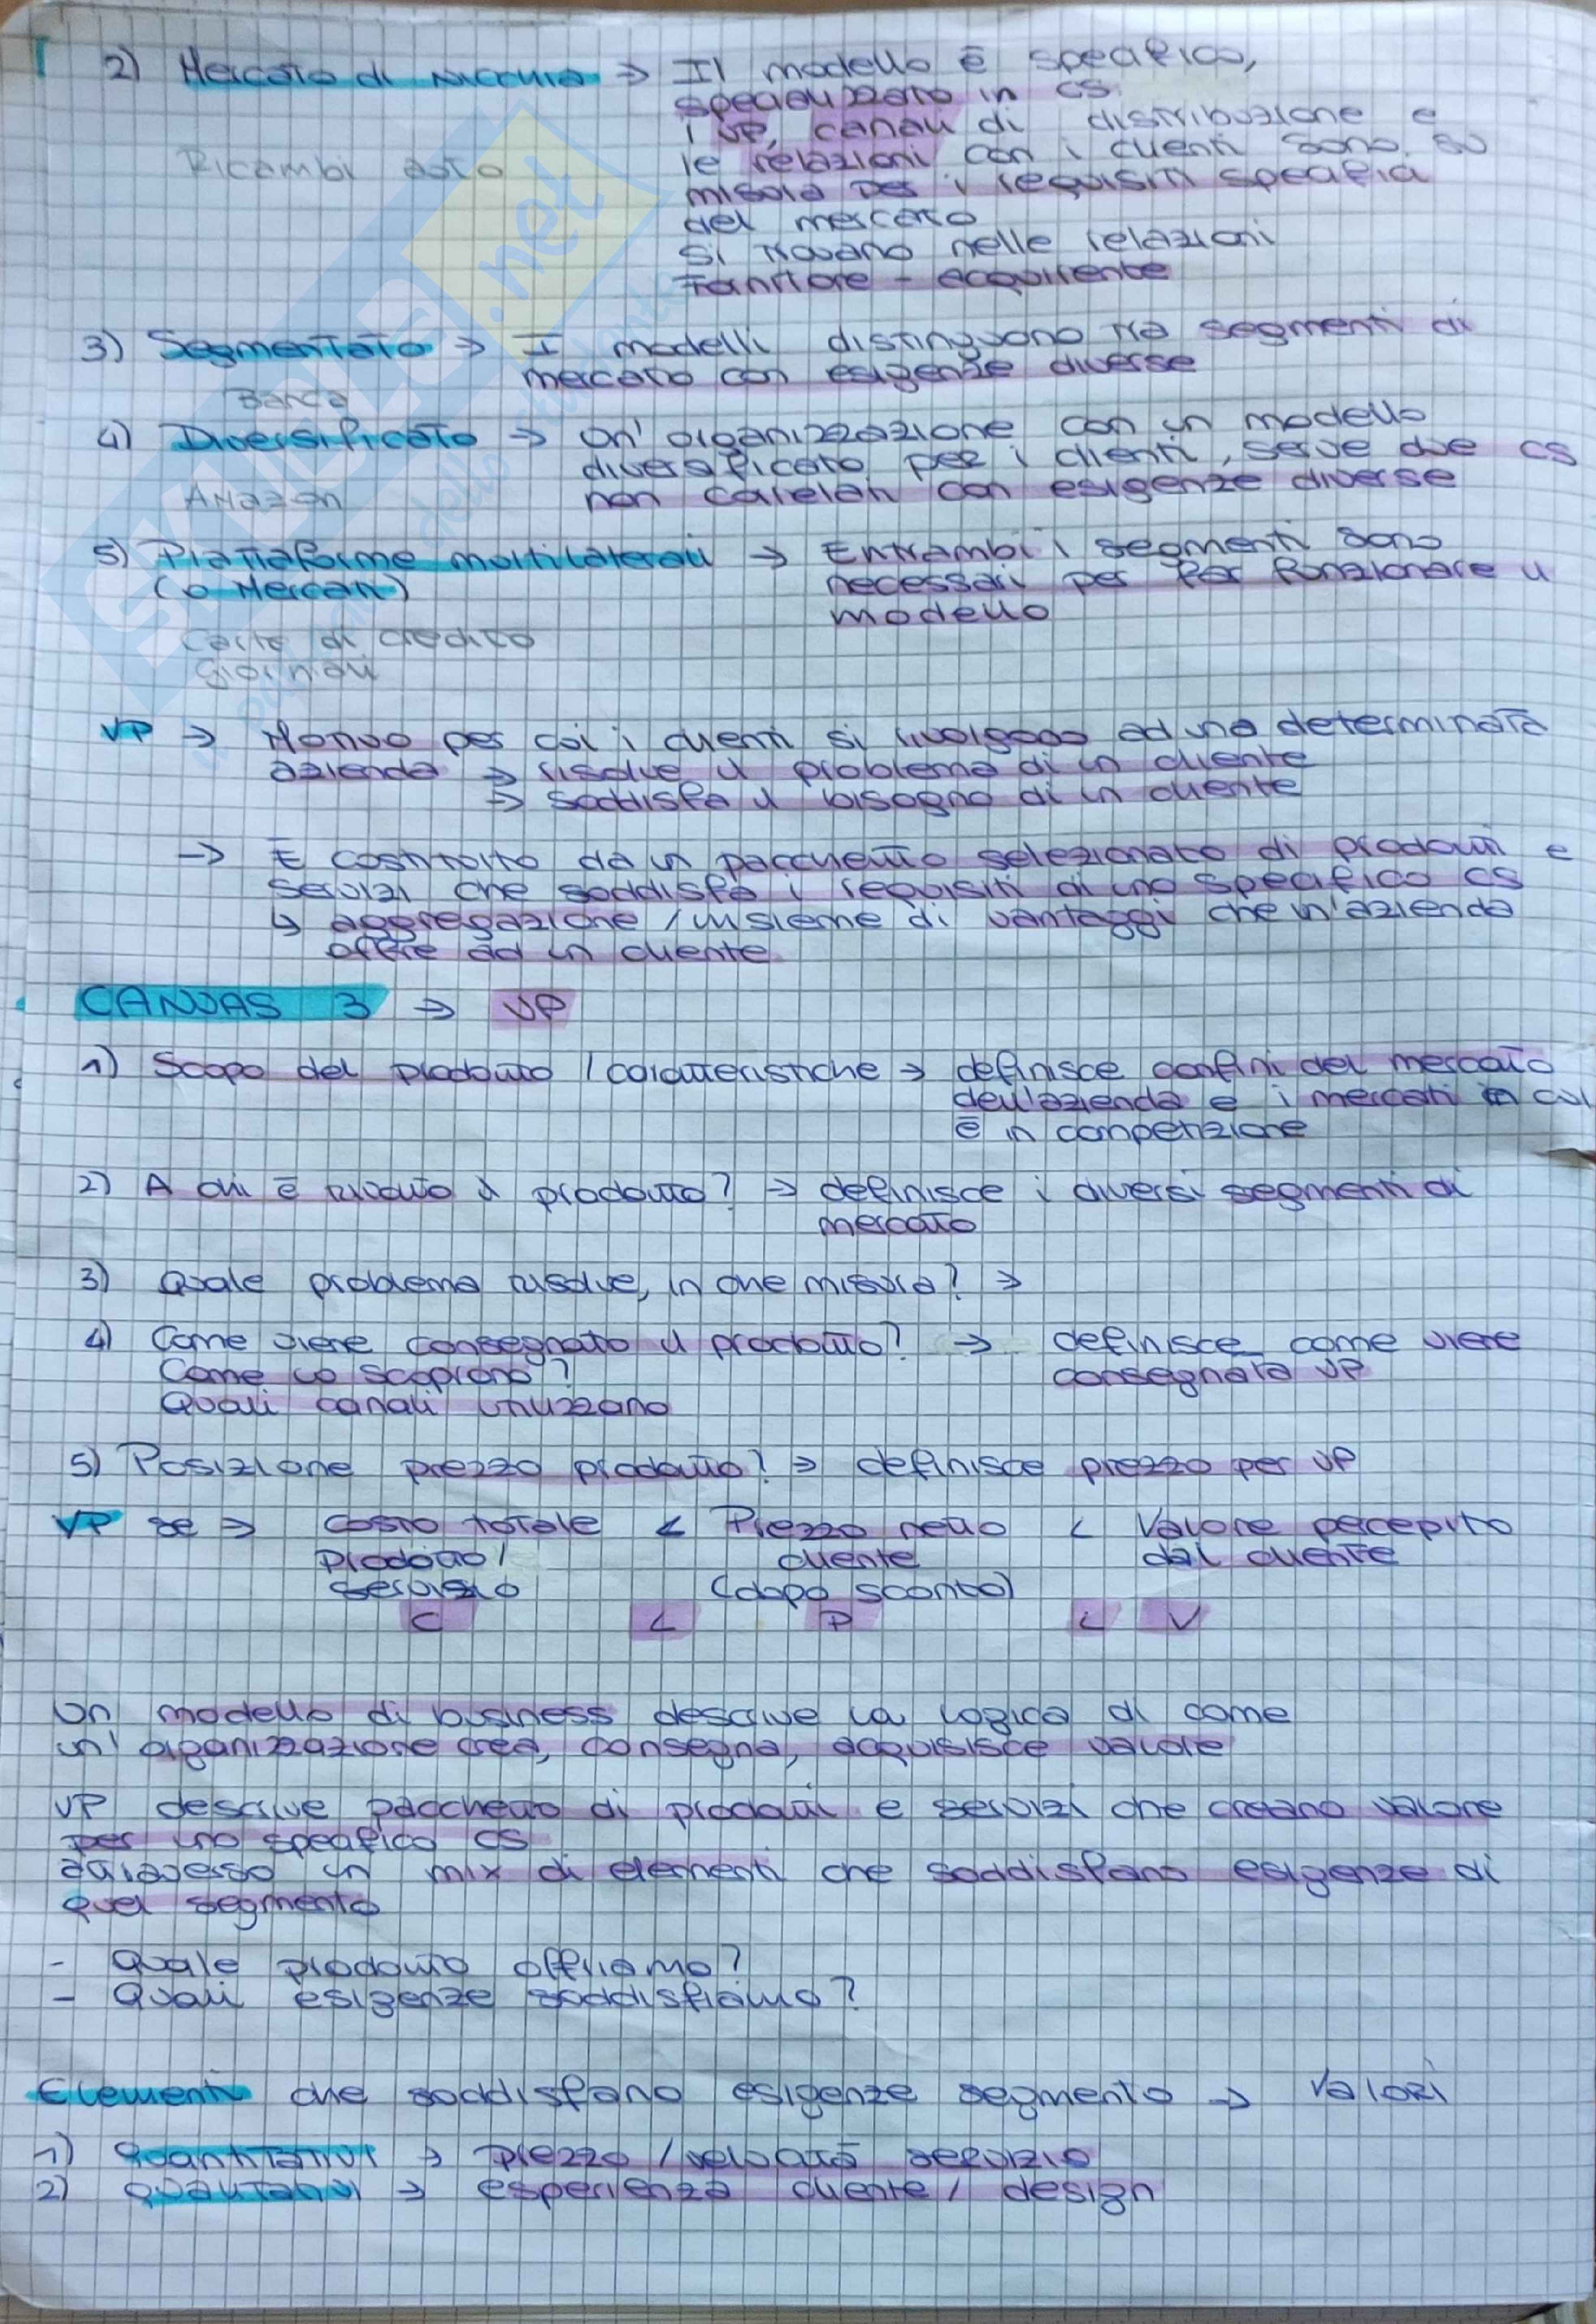 2) Mercato di nicchia → Il modello è specifico,
specializzato in CS
i VP, canali di distribuzione e
Ricambi auto
le relazioni con i clienti sono su
misura per i requisiti specifici
del mercato
si trovano nelle relazioni
Fornitore - acquirente
3) Segmentato → I modelli distinguono tra segmenti di
mercato con esigenze diverse
Banca
4) Diversificato → Un'organizzazione con un modello
diversificato per i clienti, serve due CS
Amazon
non correlati con esigenze diverse
5) Piattaforme multilaterali → Entrambi i segmenti sono
(o Mercati)
necessari per far funzionare il
modello
Carte di credito
Giornali
VP → Motivo per cui i clienti si rivolgono ad una determinata
azienda → risolve il problema di un cliente
→ soddisfa il bisogno di un cliente
→ È costituito da un pacchetto selezionato di prodotti e
servizi che soddisfa i requisiti di uno specifico CS
↳ aggregazione / insieme di vantaggi che un'azienda
offre ad un cliente
CANVAS 3 → VP
1) Scopo del prodotto / caratteristiche → definisce confini del mercato
dell'azienda e i mercati in cui
è in competizione
2) A chi è rivolto il prodotto? → definisce i diversi segmenti di
mercato
3) Quale problema risolve, in che misura? →
4) Come viene consegnato il prodotto? → definisce come viene
Come lo scoprono?
consegnata VP
Quali canali utilizzano
5) Posizione prezzo prodotto? → definisce prezzo per VP
VP se → costo totale < Prezzo netto < Valore percepito
prodotto/ cliente dal cliente
servizio (dopo sconto)
C < P < V
Un modello di business descrive la logica di come
un'organizzazione crea, consegna, acquisisce valore
VP descrive pacchetto di prodotti e servizi che creano valore
per uno specifico CS
attraverso un mix di elementi che soddisfano esigenze di
quel segmento
- Quale prodotto offriamo?
- Quali esigenze soddisfiamo?
Elementi che soddisfano esigenze segmento → Valori
1) Quantitativi → prezzo / velocità servizio
2) Qualitativi → esperienza cliente / design
SKUOLA.net